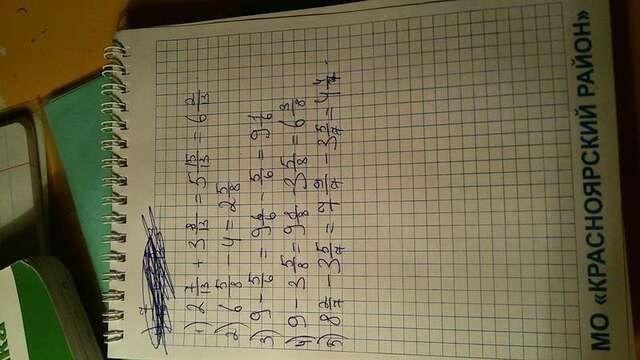 ка
1) 2 7/13 + 3 8/13 = 5 15/13 = 6 2/13
2) 6 5/8 - 4 = 2 5/8
3) 9 - 5/6 = 9 6/6 - 5/6 = 9 1/6
4) 9 - 3 5/8 = 9 8/8 - 3 5/8 = 6 3/8
5) 8 2/7 - 3 5/7 = 7 9/7 - 3 5/7 = 4 4/7
МО «КРАСНОЯРСКИЙ РАЙОН»